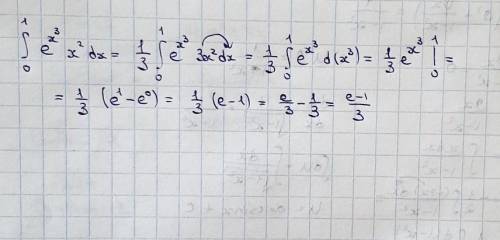 ∫₀¹ e^{x³} x² dx = 1/3 ∫₀¹ e^{x³} 3x² dx = 1/3 ∫₀¹ e^{x³} d(x³) = 1/3 e^{x³} |₀¹ =
= 1/3 (e¹ − e⁰) = 1/3 (e − 1) = e/3 − 1/3 = (e−1)/3